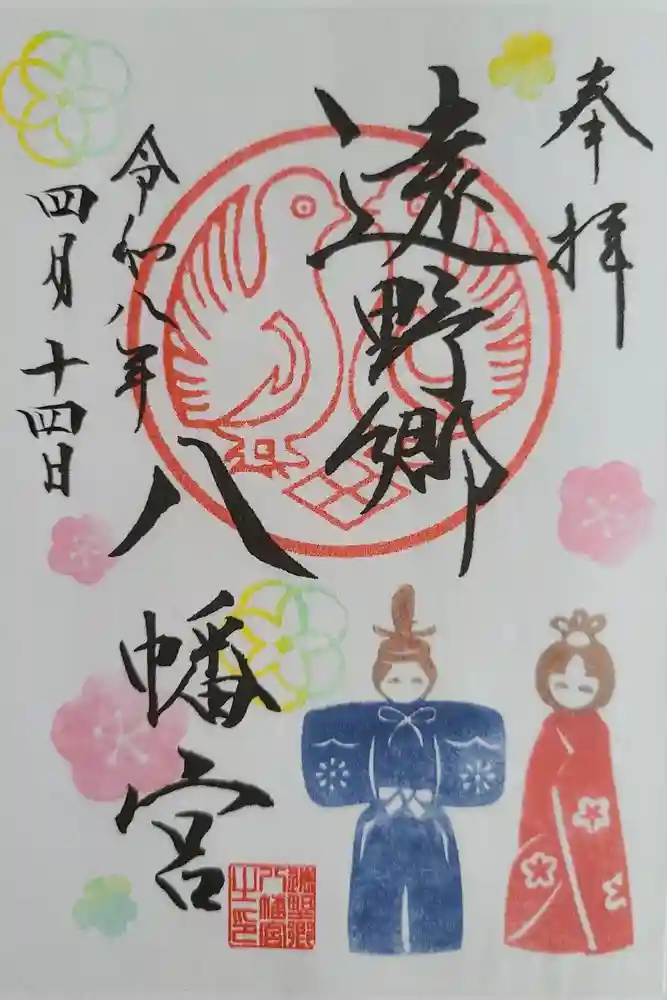 奉拝
遠野郷
八幡宮
令和八年
四月十四日
遠野郷
八幡宮
之印